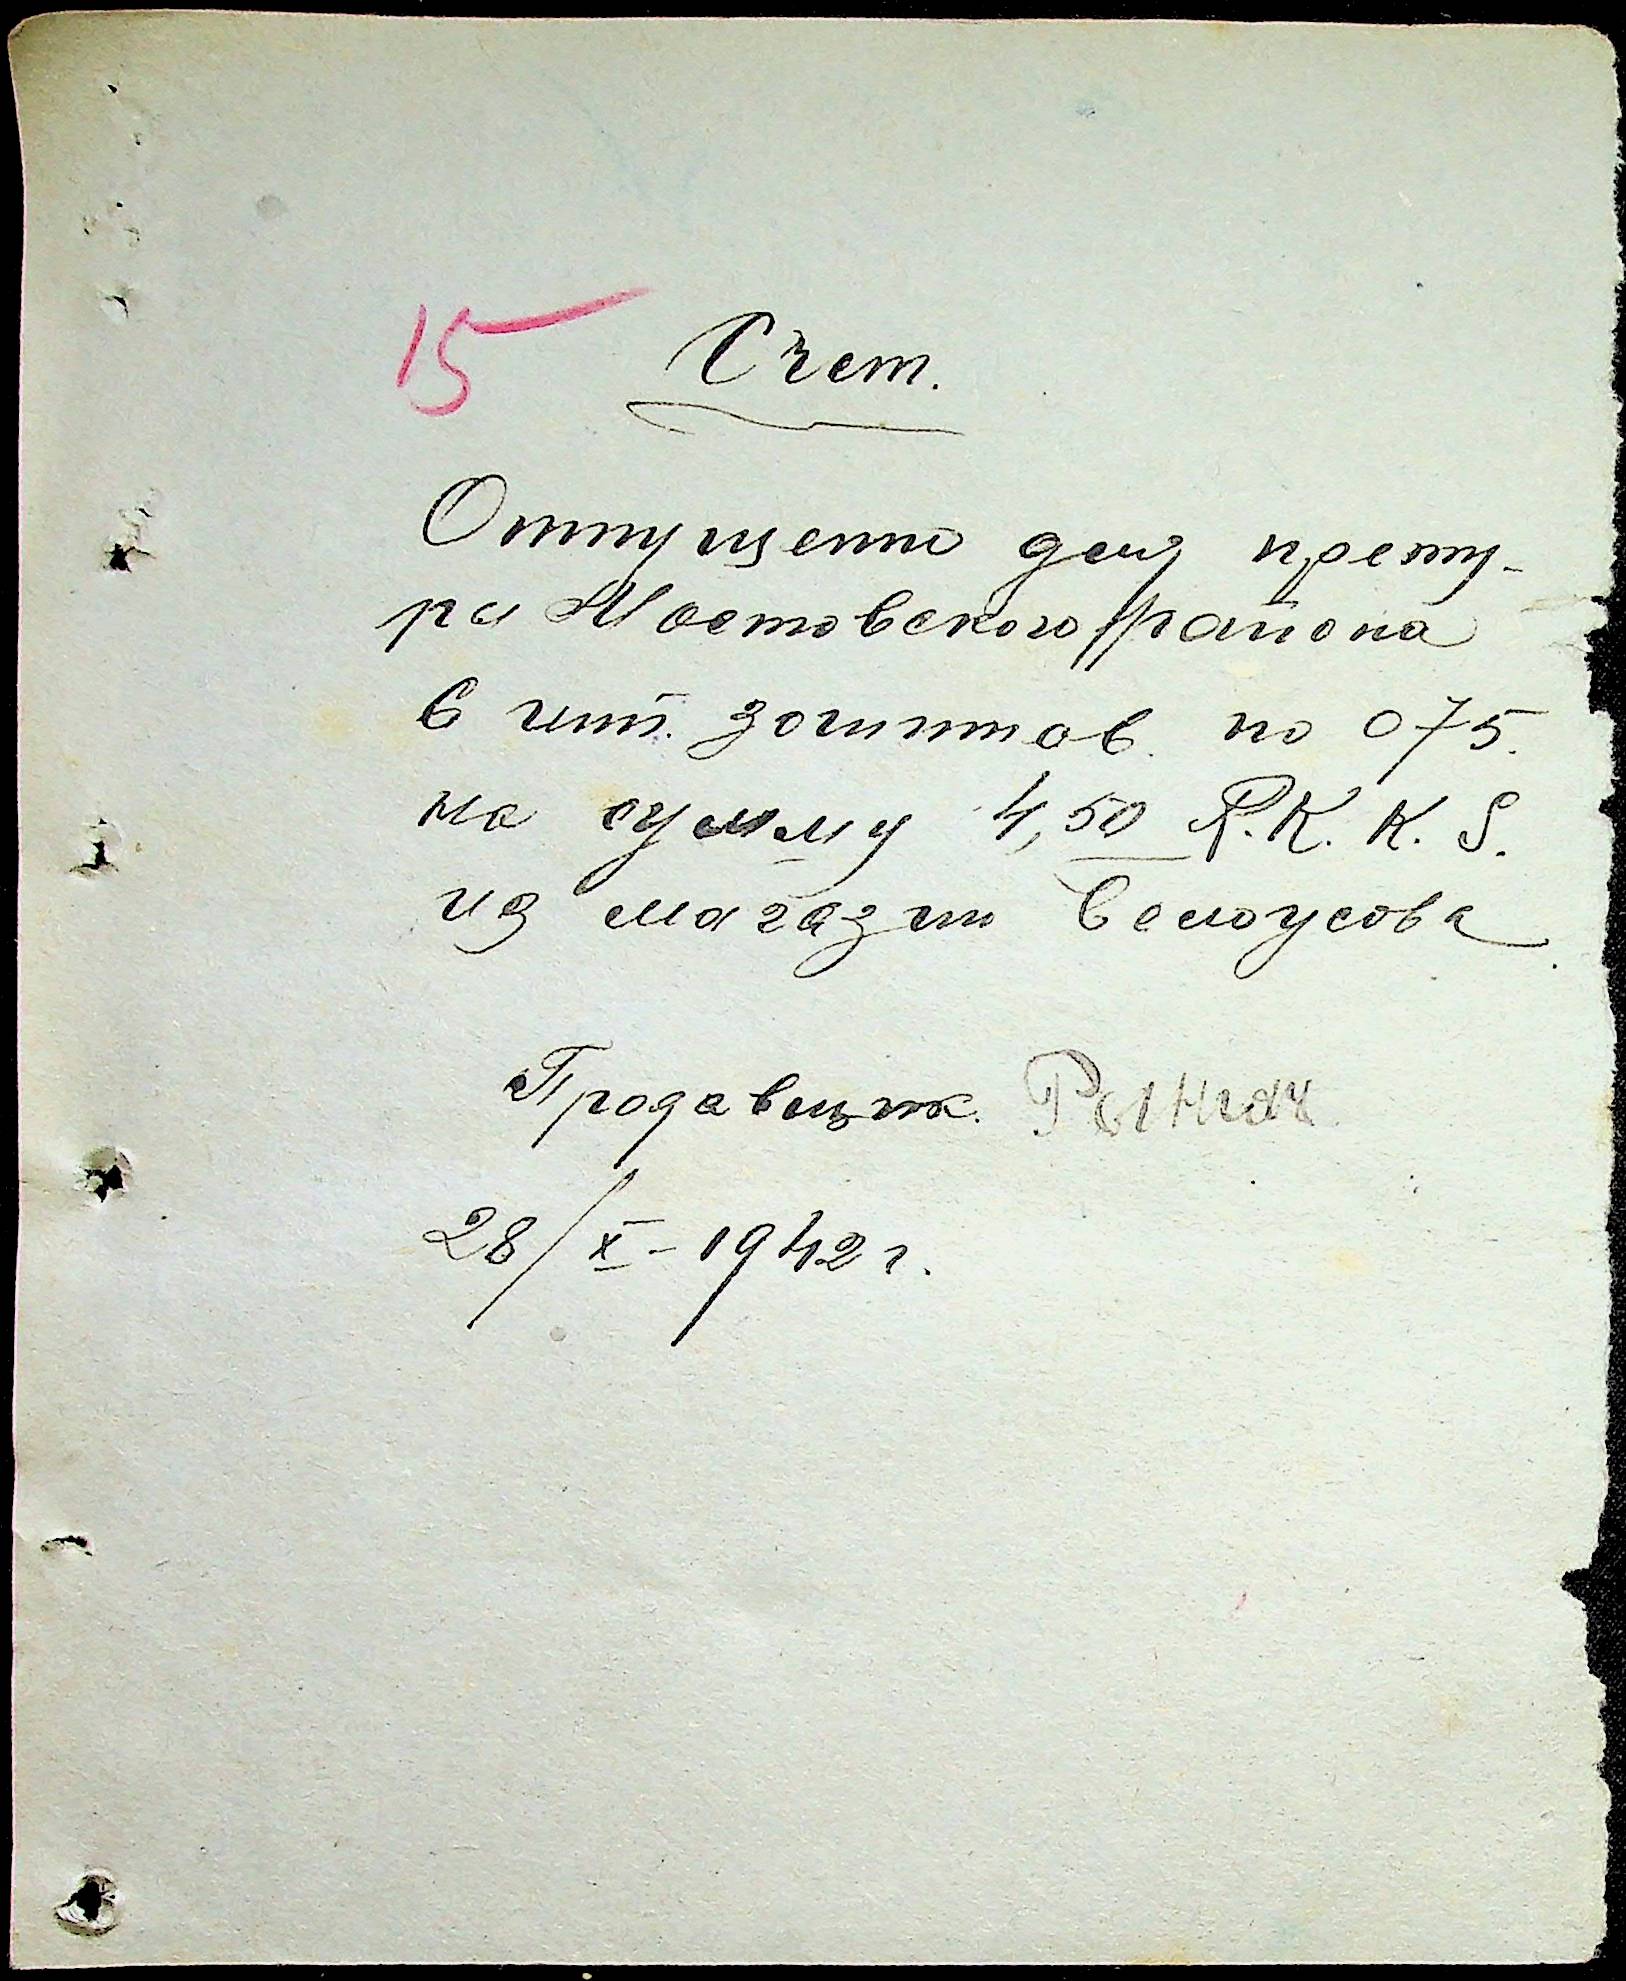 15 Счет.
Отпущенно для прету-
ры Мостовского района
6 шт. по 075.
на сумму 4,50 R.K.K.S.
из магазин Белоусова
Продавщик.
28/X-1942 г.